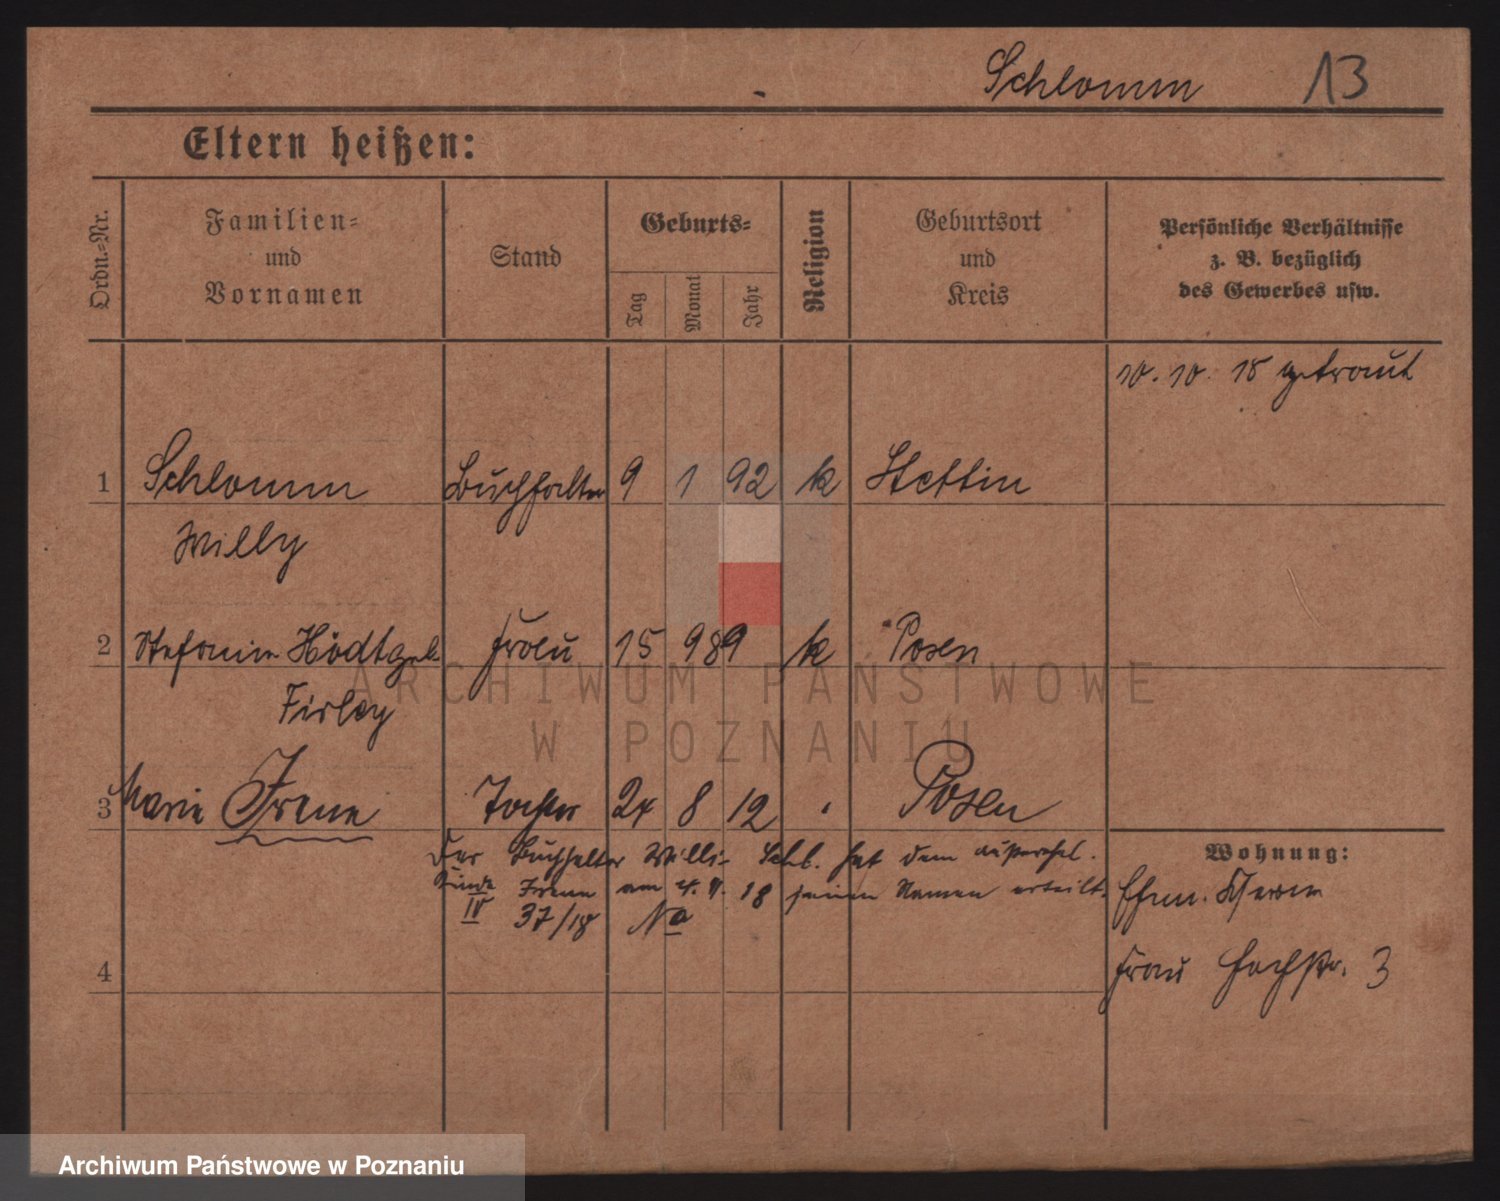 Schlomm 13
Eltern heißen:
Ordn.-Nr.
Familien-
und
Vornamen
Stand
Geburts-
Tag
Monat
Jahr
Religion
Geburtsort
und
Kreis
Persönliche Verhältnisse
z. B. bezüglich
des Gewerbes usw.
10. 10. 18 getraut
1 Schlomm Buchhalter 9 1 92 k Stettin
Willy
2 Stefanie Frau 15 9 89 k Posen
Firley
3 Marie Irene Tochter 24 8 12 Posen
Der Buchhalter Willi Schl. hat dem außerehel.
Kinde Irene am 4. 9. 18 seinen Namen erteilt.
IV 37/18 No
Wohnung:
Ehem.
4
Frau Hochstr. 3
ARCHIWUM PAŃSTWOWE
W POZNANIU
Archiwum Państwowe w Poznaniu